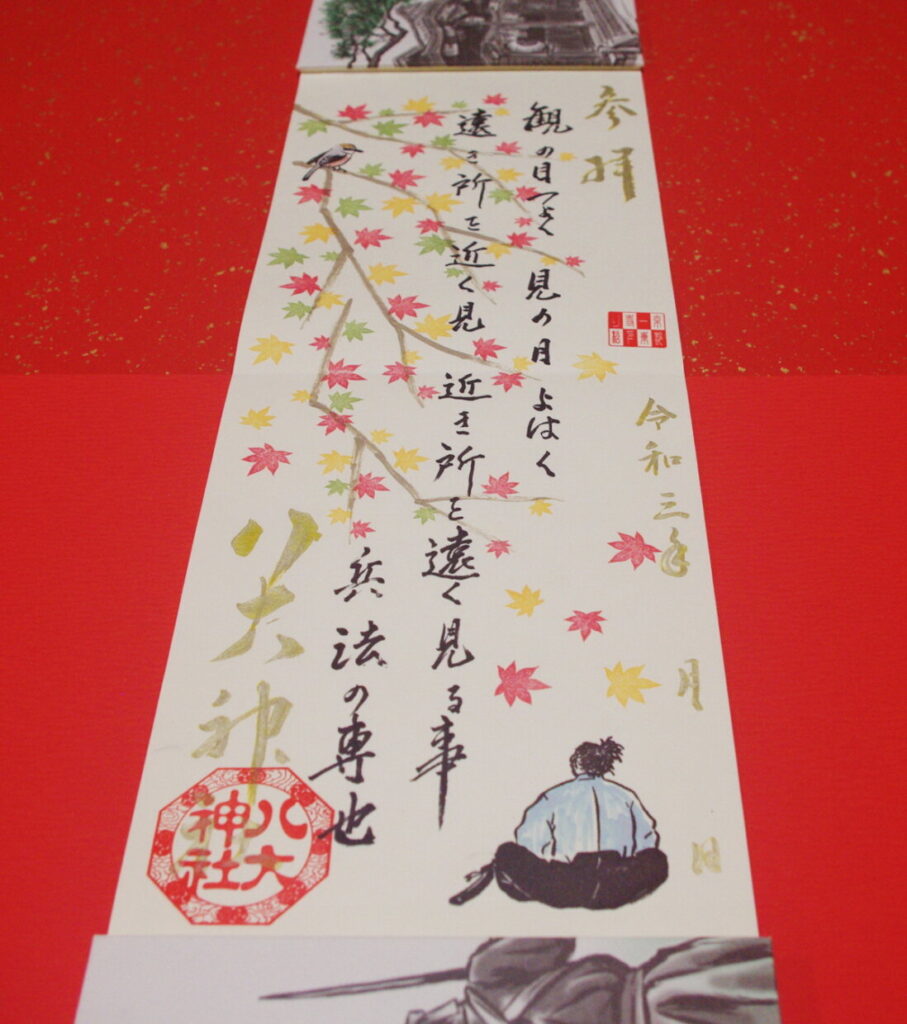 参拝
京都一乗寺下り松
令和三年 月 日
観の目つよく 見の目よはく
遠き所を近く見 近き所を遠く見る事
兵法の専也
八大神社
八大神社